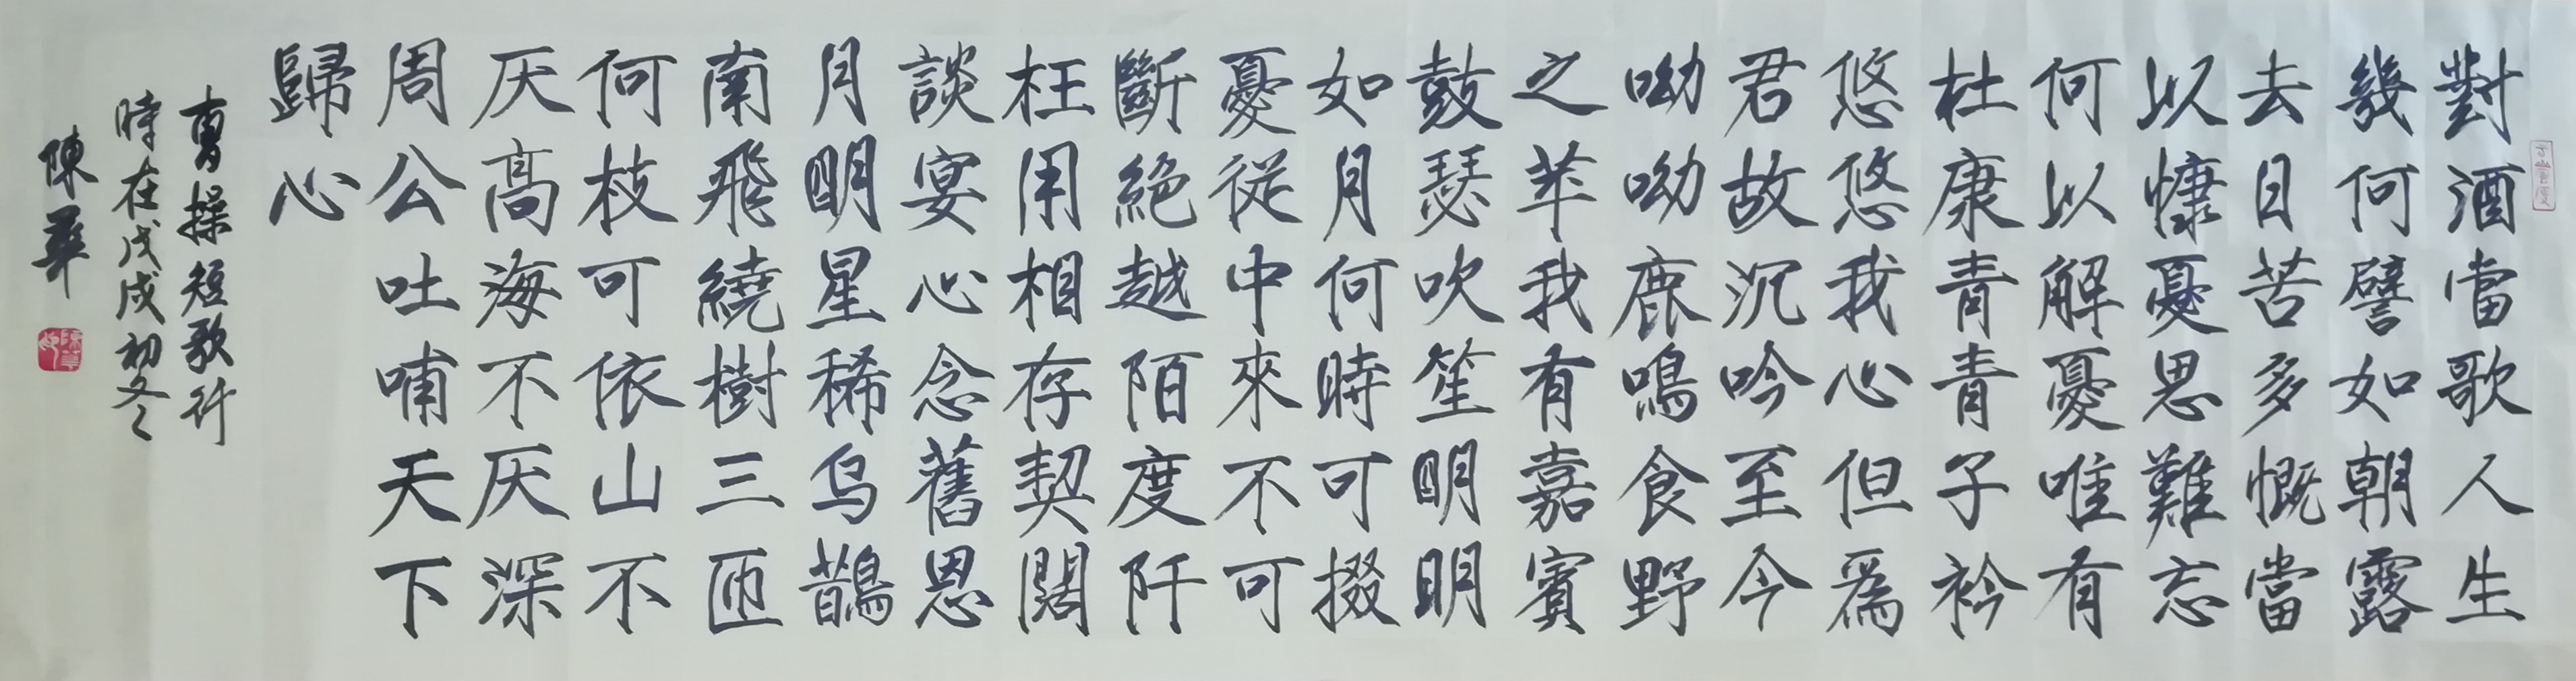 對酒當歌人生
幾何譬如朝露
去日苦多慨當
以慷憂思難忘
何以解憂唯有
杜康青青子衿
悠悠我心但爲
君故沉吟至今
呦呦鹿鳴食野
之苹我有嘉賓
鼓瑟吹笙明明
如月何時可掇
憂從中來不可
斷絕越陌度阡
枉用相存契闊
談宴心念舊恩
月明星稀烏鵲
南飛繞樹三匝
何枝可依山不
厌高海不厌深
周公吐哺天下
歸心
曹操短歌行
時在戊戌初冬
陳華